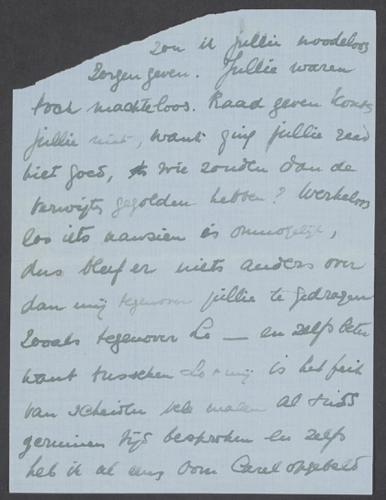 zou ik jullie noodeloos
zorgen geven. Jullie waren
toch machteloos. Raad geven kondt
jullie niet, want ging jullie raad
niet goed, wie zouden dan de
verwijten gegolden hebben? Werkeloos
los iets aanzien is onmogelijk,
dus bleef er niets anders over
dan mij tegenover jullie te gedragen
zooals tegenover Lo — en zelfs beter
want tusschen Lo + mij is het feit
van scheiden vele malen al sinds
geruimen tijd besproken en zelfs
heb ik al eens Oom Carel opgebeld